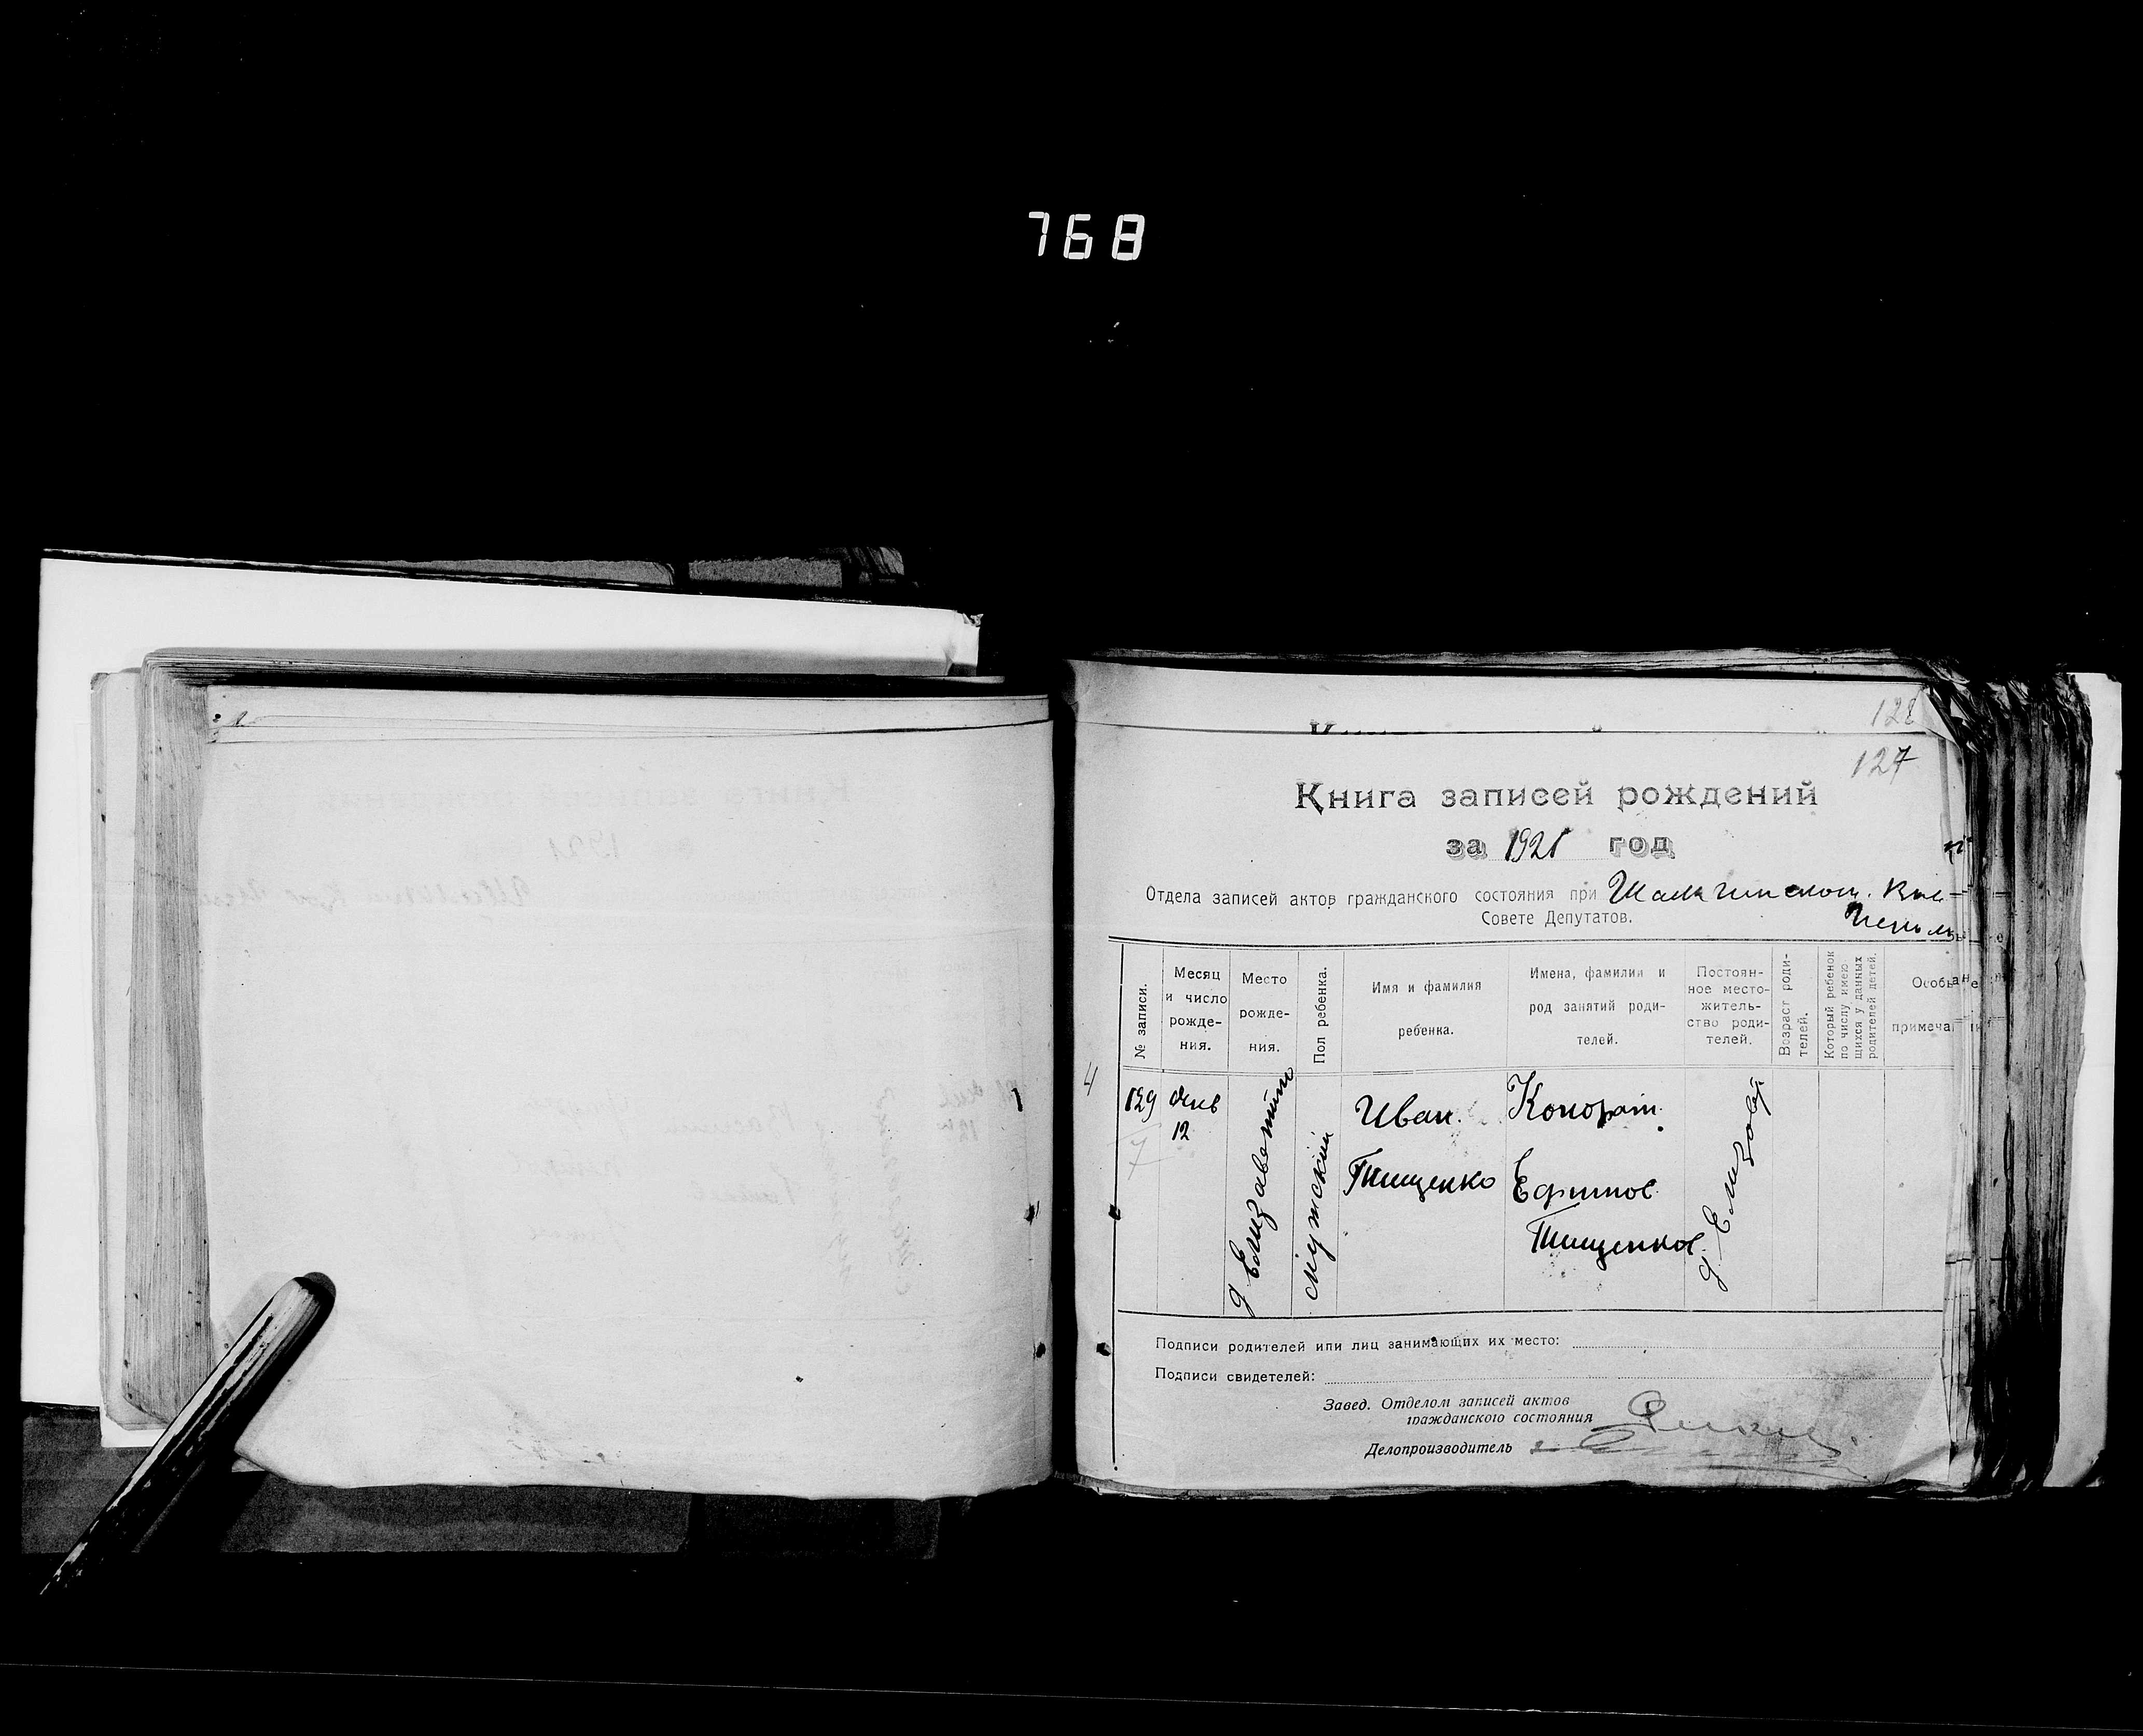 768
128
127
Книга записей рождений
за 1921 год
Отдела записей актов гражданского состояния при
Совете Депутатов.
№ записи.
Месяц и число рожде- ния.
Место рожде- ния.
Пол ребенка.
Имя и фамилия ребенка.
Имена, фамилии и род занятий роди- телей.
Постоян- ное место- житель- ство роди- телей.
Возраст роди- телей.
Который ребенок по числу имею- щихся у данных родителей детей.
4
129
Янв
12
д Елизаветино
мужский
Иван
Тищенко
Конорат
Ефимов
Тищенков
д. Елизавет
Подписи родителей или лиц занимающих их место:
Подписи свидетелей:
Завед. Отделом записей актов
гражданского состояния
Делопроизводитель